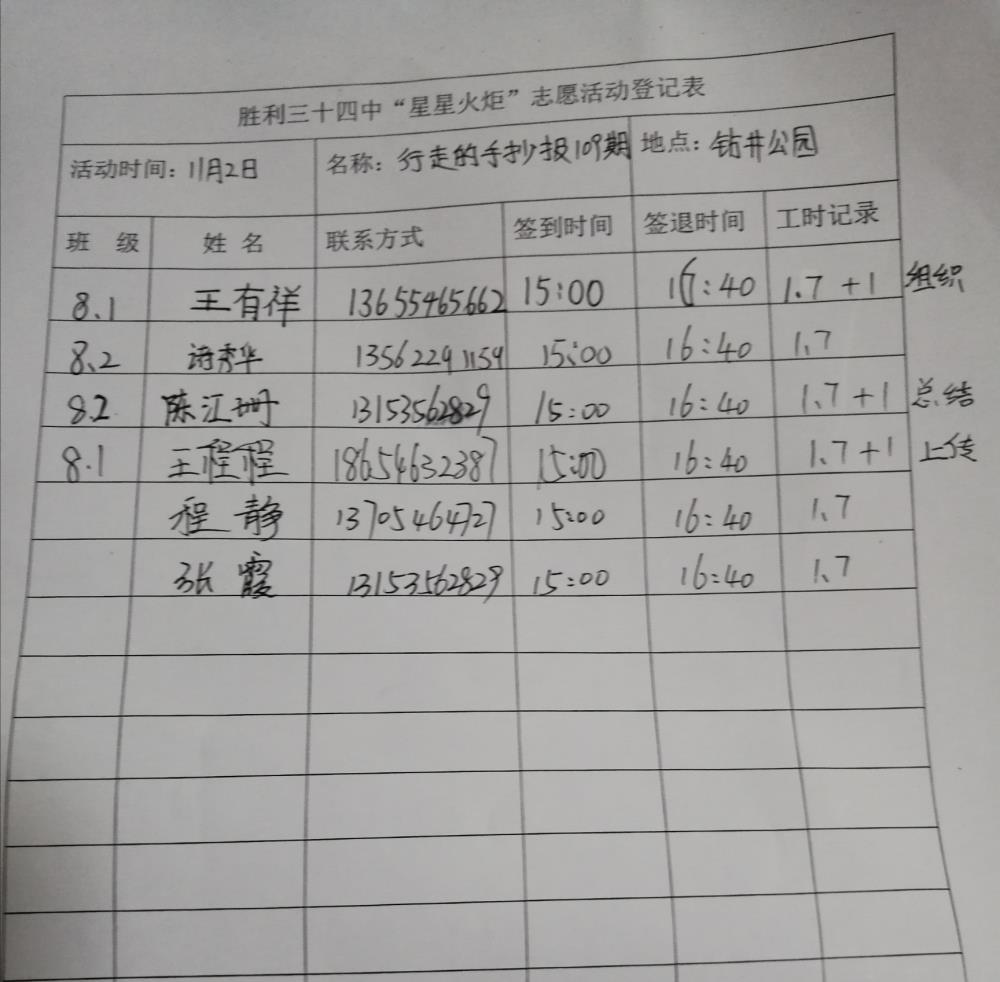 胜利三十四中“星星火炬”志愿活动登记表
活动时间：11月2日 名称：行走的手抄报109期 地点：钻井公园
班 级 姓 名 联系方式 签到时间 签退时间 工时记录
8.1 王有祥 13655465662 15:00 16:40 1.7+1 组织
8.2 秀华 13562291159 15:00 16:40 1.7
8.2 陈江珊 13153562829 15:00 16:40 1.7+1 总结
8.1 王程程 18654632387 15:00 16:40 1.7+1 上传
程静 13705464727 15:00 16:40 1.7
张霞 13153562829 15:00 16:40 1.7